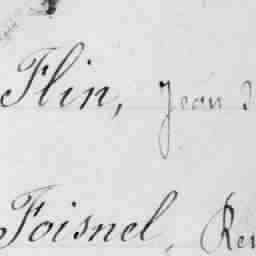 Flin, Jean
Foisnel, Re